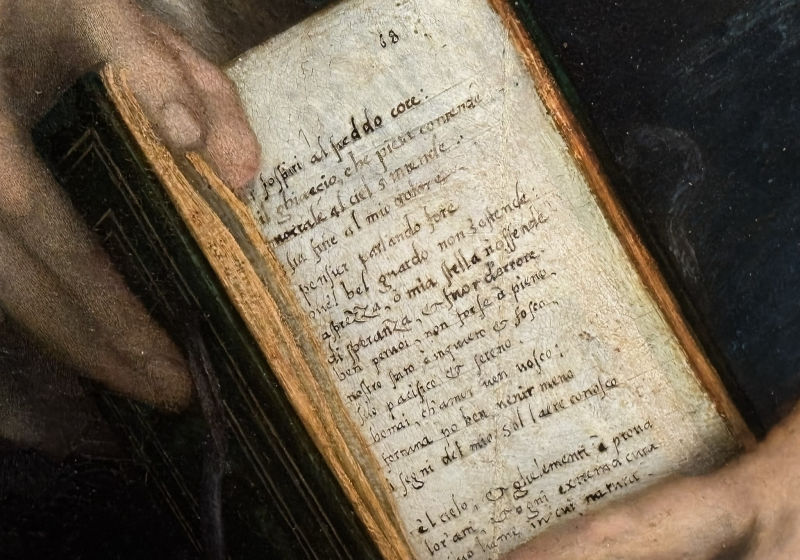 68
i sospiri al freddo core:
il ghiaccio, che pietà contende
mortale al ciel s'intende:
sia fine al mio dolore
pensier parlando fore
ove'l bel guardo non s'estende:
asprezza, o mia stella n'offende
di speranza, et fuor d'errore.
ben penoi, non forse à pieno,
nostro stato è inquieto et fosco,
pacifico et sereno.
homai, ch'amor uen uosco:
fortuna po ben uenir meno
i segni del mio sol l'aere conosco
el cielo, et gli elementi à proua
lor arti, et ogni extrema cura
in cui natura